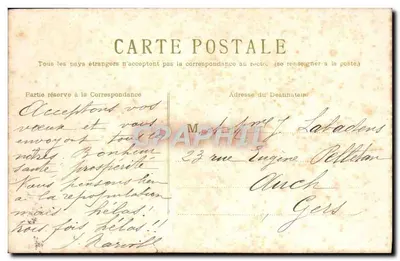 CARTE POSTALE
Tous les pays étrangers n'acceptent pas la correspondance au recto. (se renseigner à la poste)
Partie réservée à la Correspondance
Adresse du Destinataire
Acceptons vos
vœux et vous
envoyons tous
nôtres Bonheur
santé prospérité
Nous pensons bien
à la représentation
mais hélas!
trois fois hélas!!
M
Labadens
23 rue Eugène Pelletan
Auch
Gers
CPArama